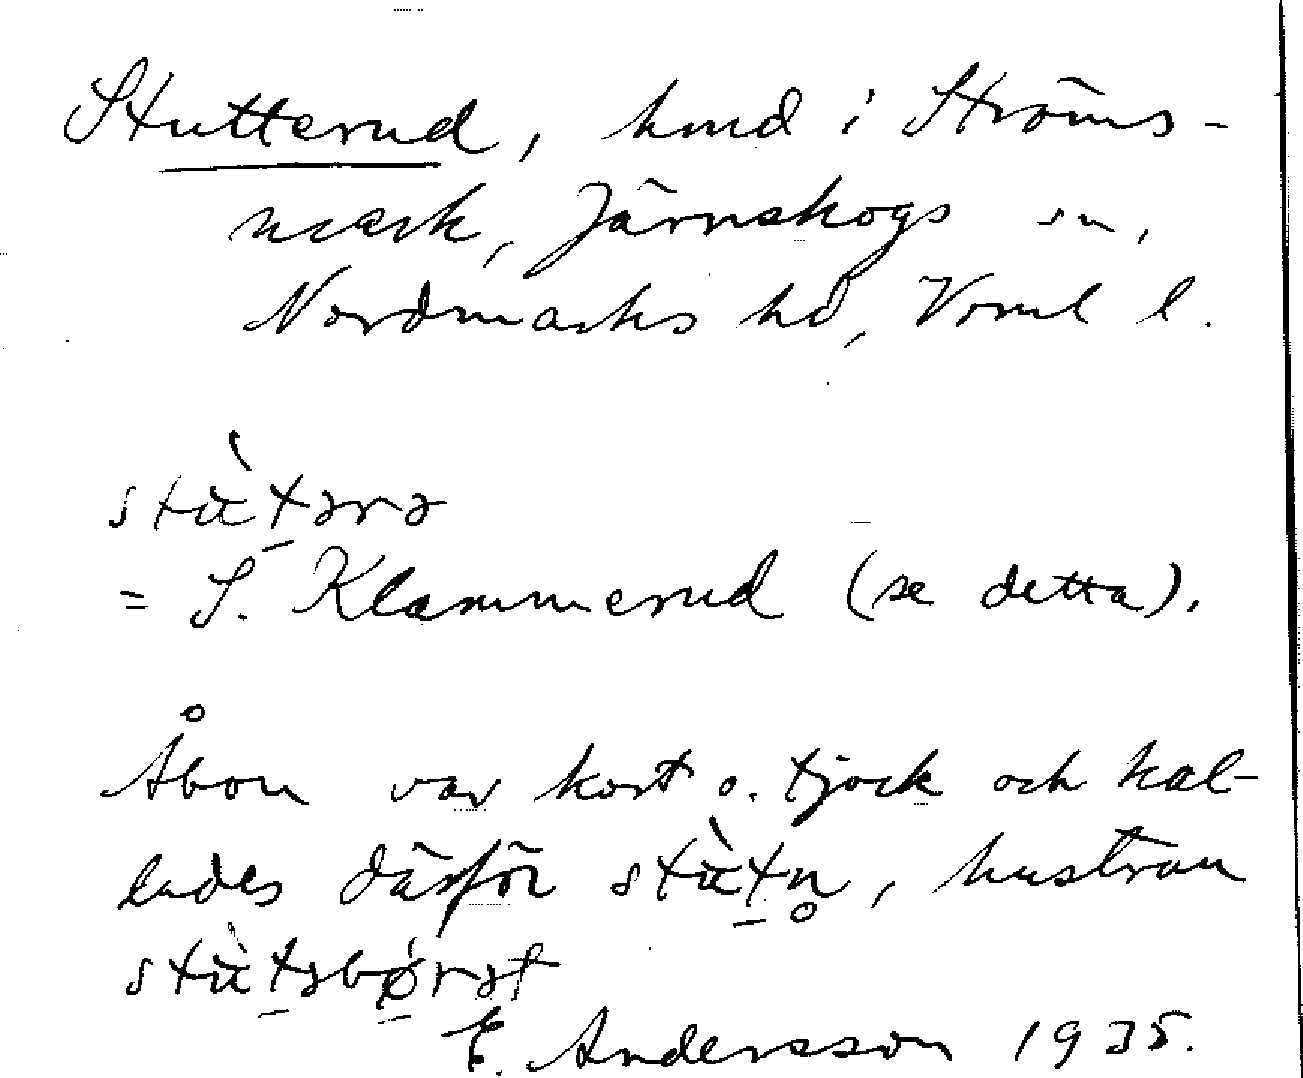 Stutterud, hmd i Ströms-
mark, Järnskogs sn,
Nordmarks hd, Vrml l.
stu̇̀tərə
= S. Klammerud (se detta).
Åbon var kort o. tjock och kal-
lades därför stu̇̀tn̥, hustrun
stu̇̀təbørst
E. Andersson 1935.